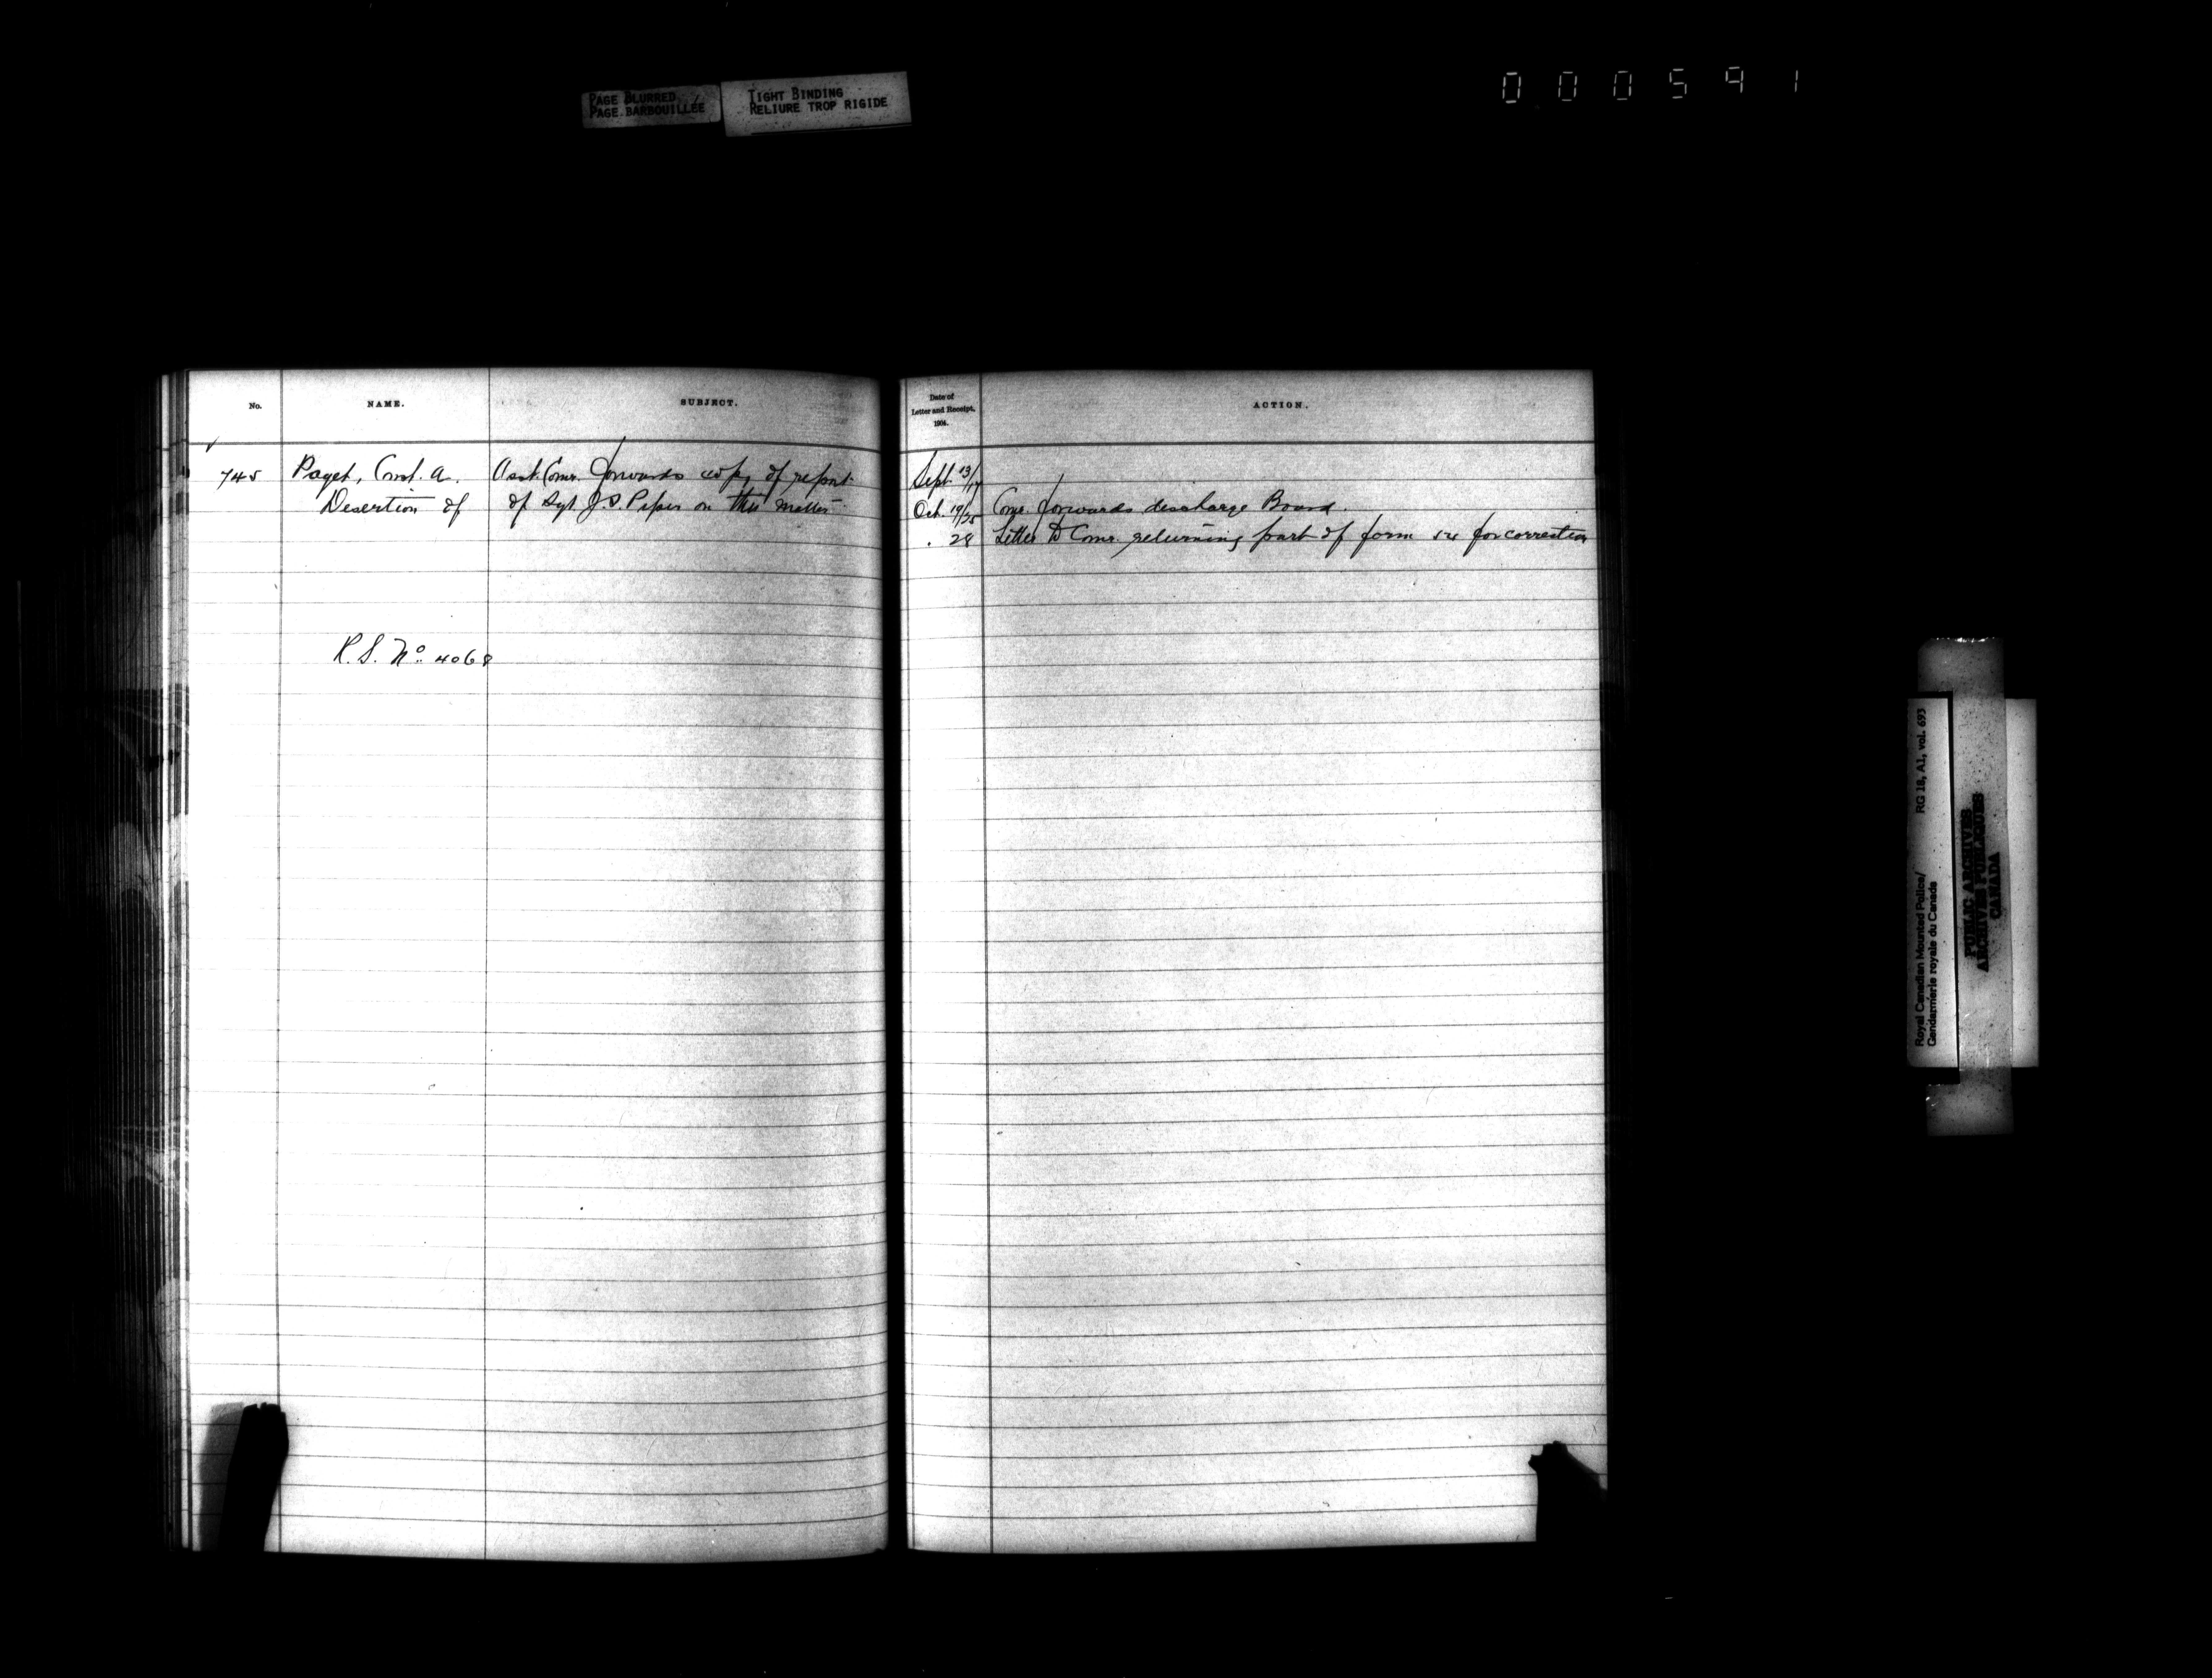 PAGE BLURRED
PAGE BARBOUILLÉE
TIGHT BINDING
RELIURE TROP RIGIDE
000591
No.
NAME.
SUBJECT.
745
Paget, Const. A.
Desertion of
Asst. Comr. forwards copy of report
of Sgt. J.S. Piper on this matter
R.S. No. 4068
Date of
Letter and Receipt.
1904.
ACTION.
Sept. 13/17
Oct. 19/25
Comr. forwards discharge Board.
. 28
Letter to Comr. returning part of form for correction
Royal Canadian Mounted Police/
Gendarmerie royale du Canada
RG 18, A1, vol. 693
PUBLIC ARCHIVES
ARCHIVES PUBLIQUES
CANADA